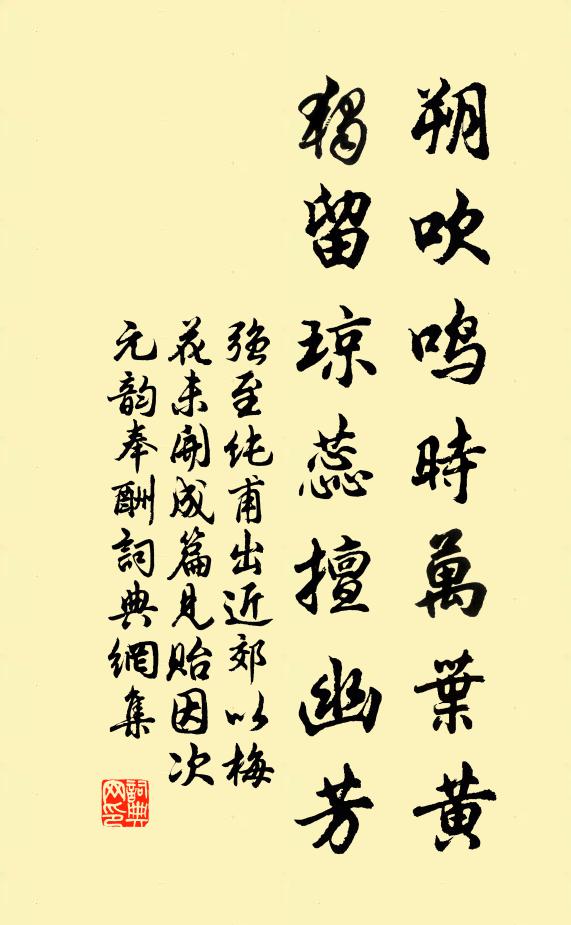 朔吹鳴時萬葉黃
獨留瓊蕊擅幽芳
強至純甫出近郊以梅
花未開成篇見貽因次
元韵奉酬詞典網集
詞典網印